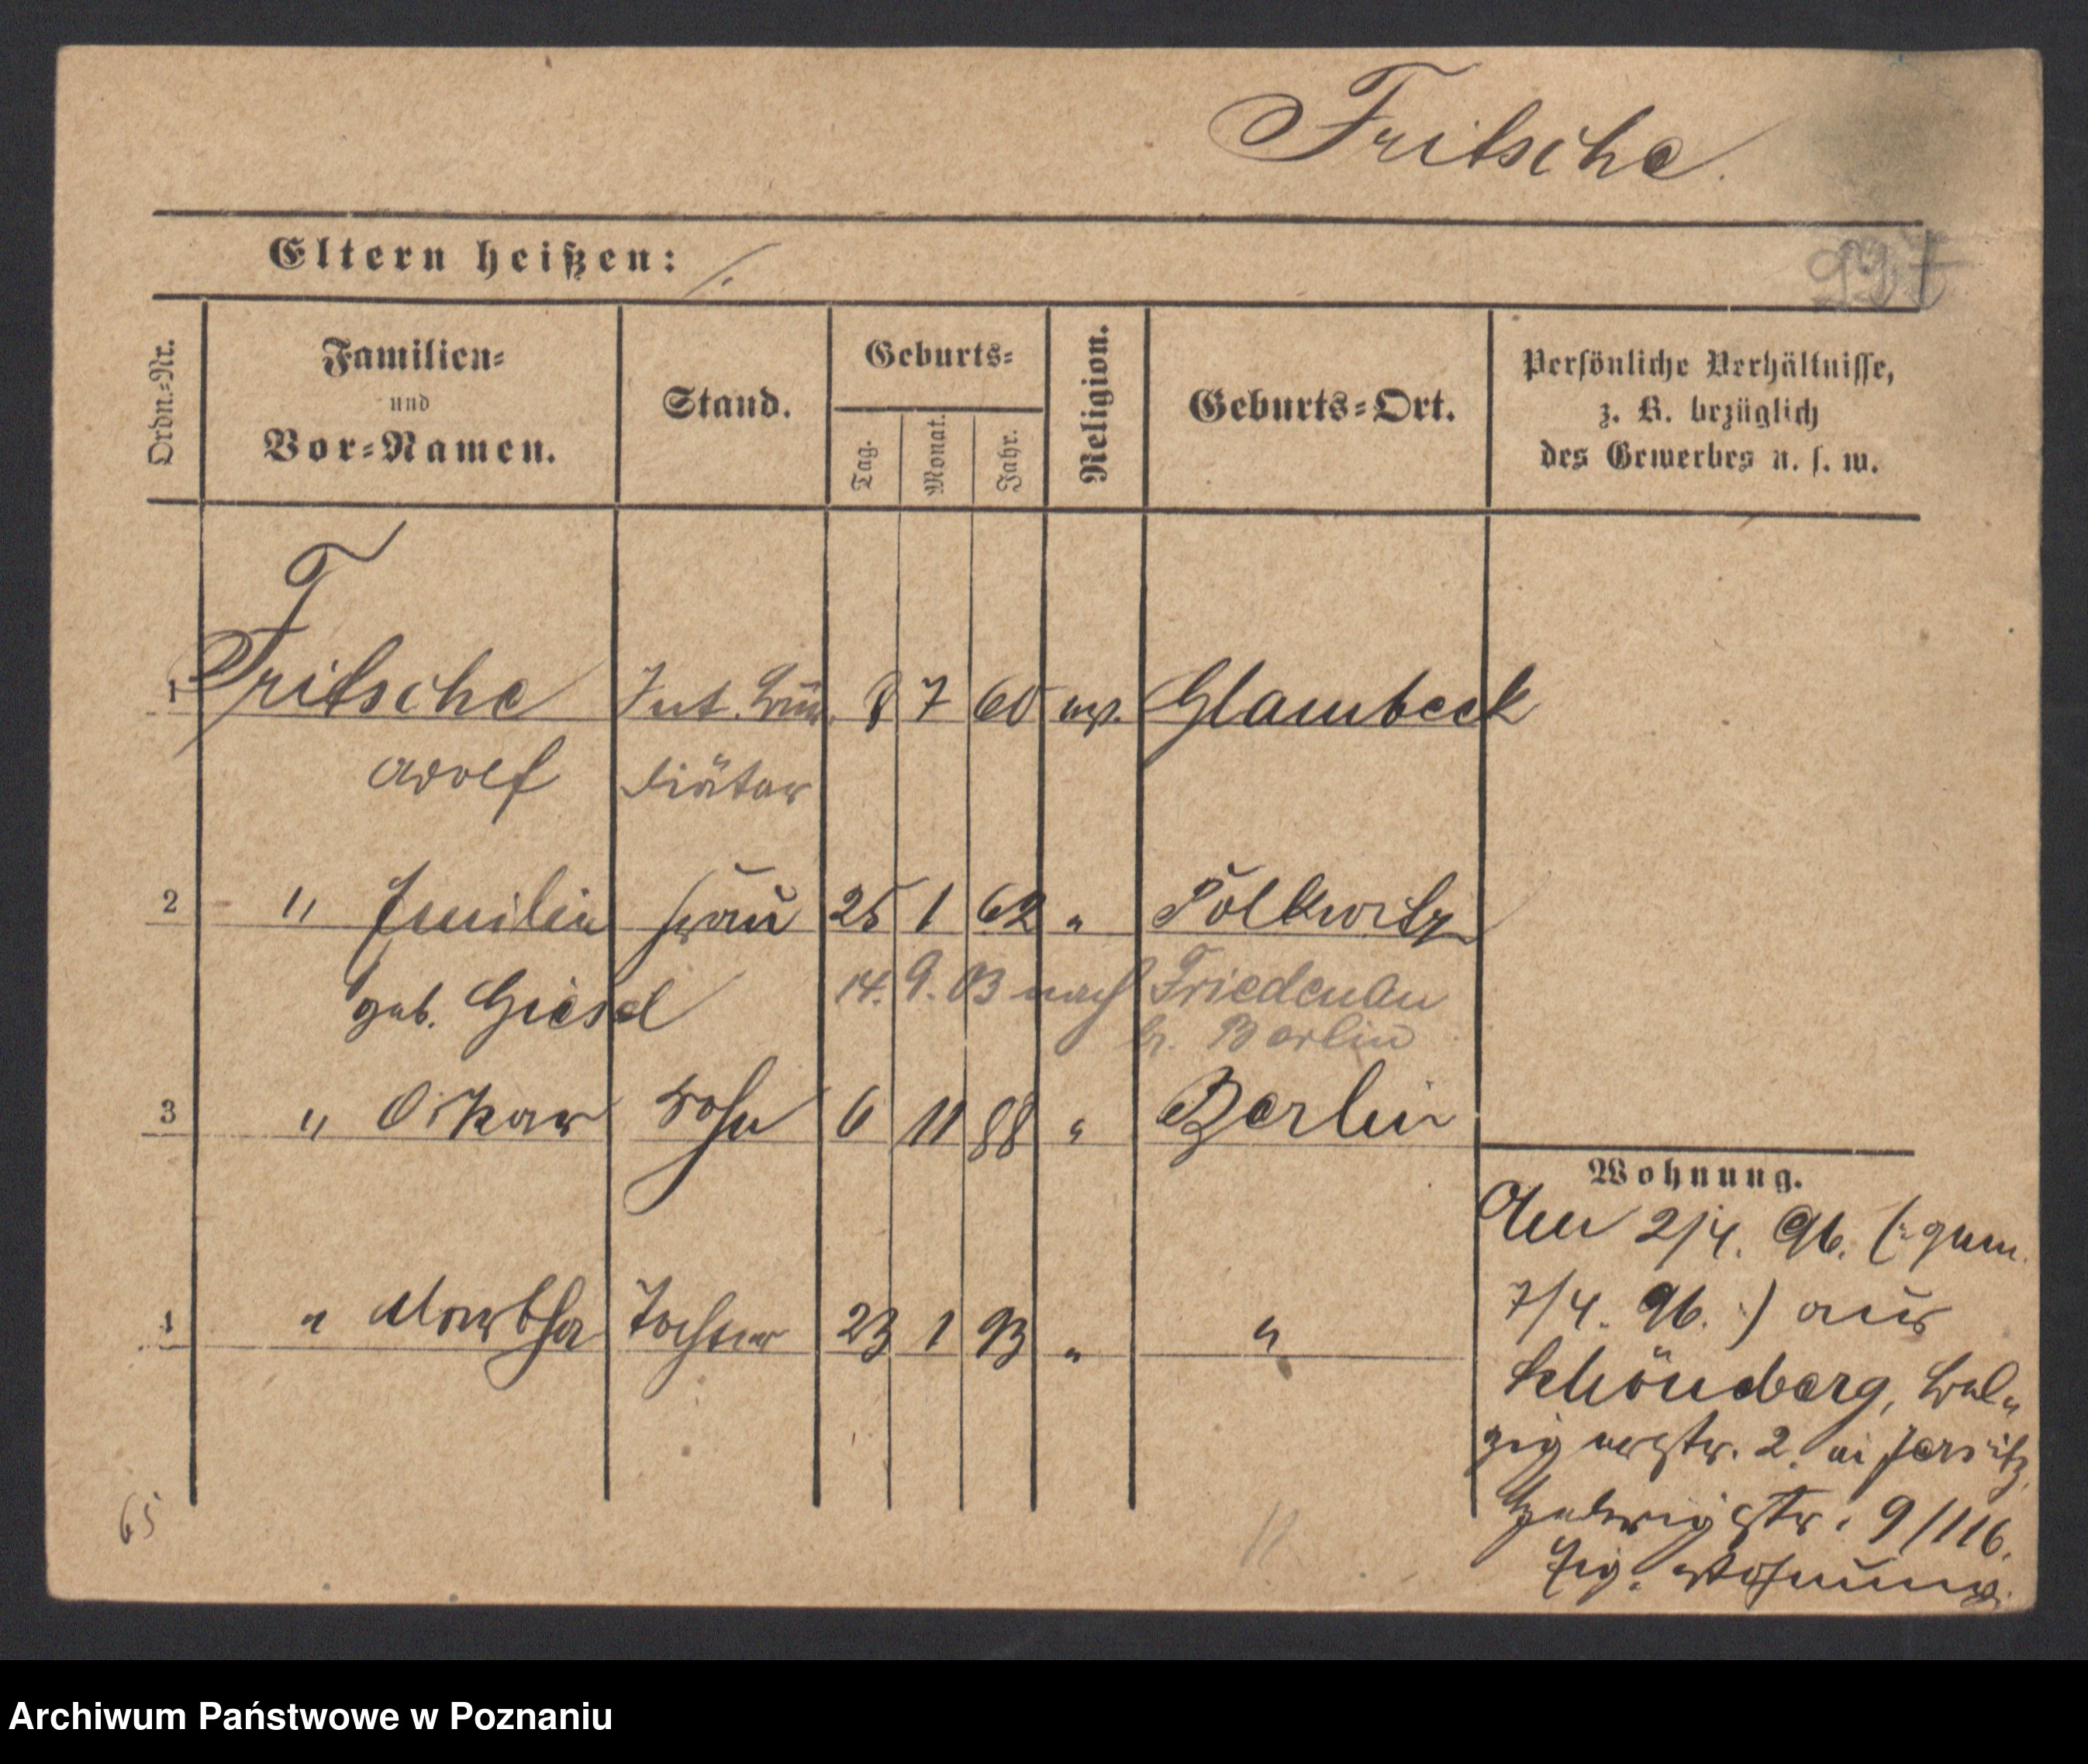 Fritsche.
Eltern heißen: /.
Ordn.=Nr.
Familien=
und
Vor=Namen.
Stand.
Geburts=
Tag.
Monat.
Jahr.
Religion.
Geburts=Ort.
Persönliche Verhältnisse,
z. B. bezüglich
des Gewerbes u. s. w.
1 Fritsche Int. 8 7 60 ev. Glambeck
Adolf Diätar
2 " Emilie Frau 25 1 62 " Polkwitz
geb. Giesel 14. 9. 03 nach Friedenau
b. Berlin
3 " Oskar Sohn 6 11 88 " Berlin
4 " Martha Tochter 23 1 93 " "
Wohnung.
Am 2/4. 96. (: gem.
7/4. 96. :) aus
Schöneberg, Bel=
zigerstr. 2. in Jersitz
Hedwigstr. 9/116.
Eig. Wohnung.
65
11
Archiwum Państwowe w Poznaniu